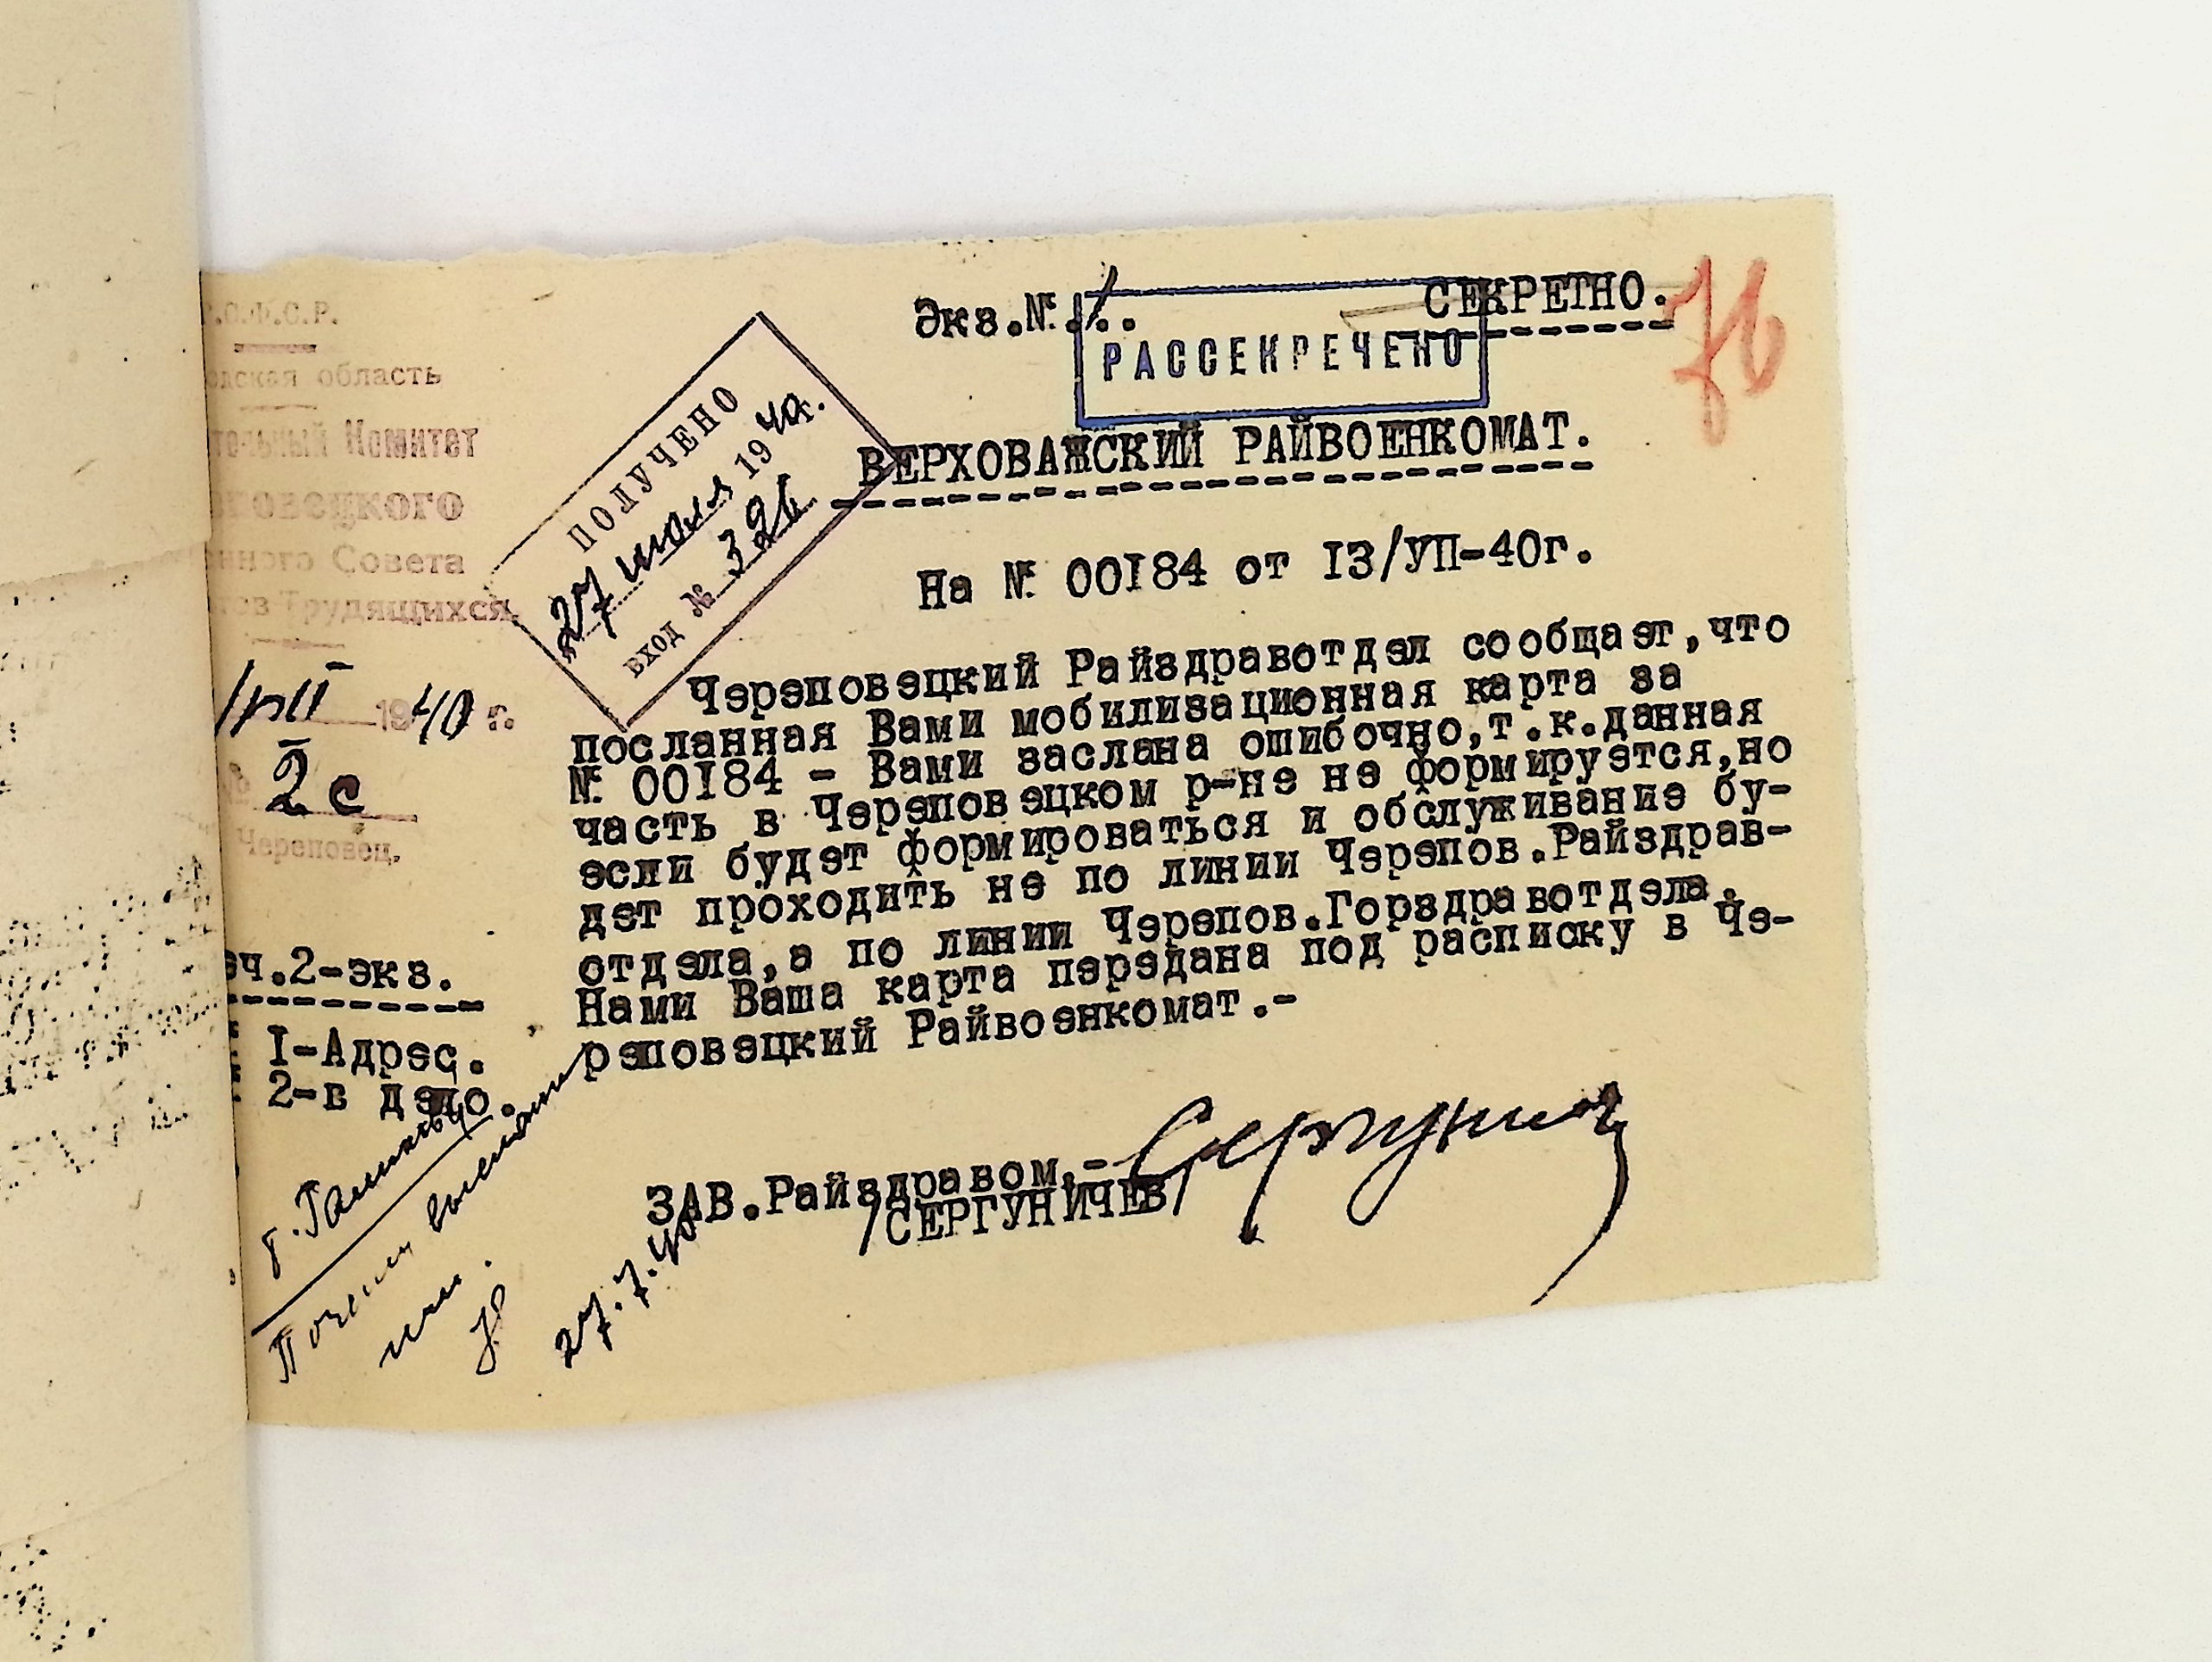 Экз.№.1..
СЕКРЕТНО.
76
РАССЕКРЕЧЕНО
.О.Ф.С.Р.
одская область
тельный Комитет
повецкого
нного Совета
тов Трудящихся
1940 г.
2с
Череповец.
ПОЛУЧЕНО
27 июля 1940г.
ВХОД № 326
ВЕРХОВАЖСКИЙ РАЙВОЕНКОМАТ.
На № 00184 от 13/УП-40г.
Череповецкий Райздравотдел сообщает,что
посланная Вами мобилизационная карта за
№ 00184 - Вами заслана ошибочно,т.к.данная
часть в Череповецком р-не не формируется,но
если будет формироваться и обслуживание бу-
дет проходить не по линии Черепов.Райздрав-
отдела,а по линии Черепов.Горздравотдела.
Нами Ваша карта передана под расписку в Че-
реповецкий Райвоенкомат.-
еч.2-экз.
1-Адрес.
2-в дело.
ЗАВ.Райздравом.-
/СЕРГУНИЧЕВ/
27.7.40